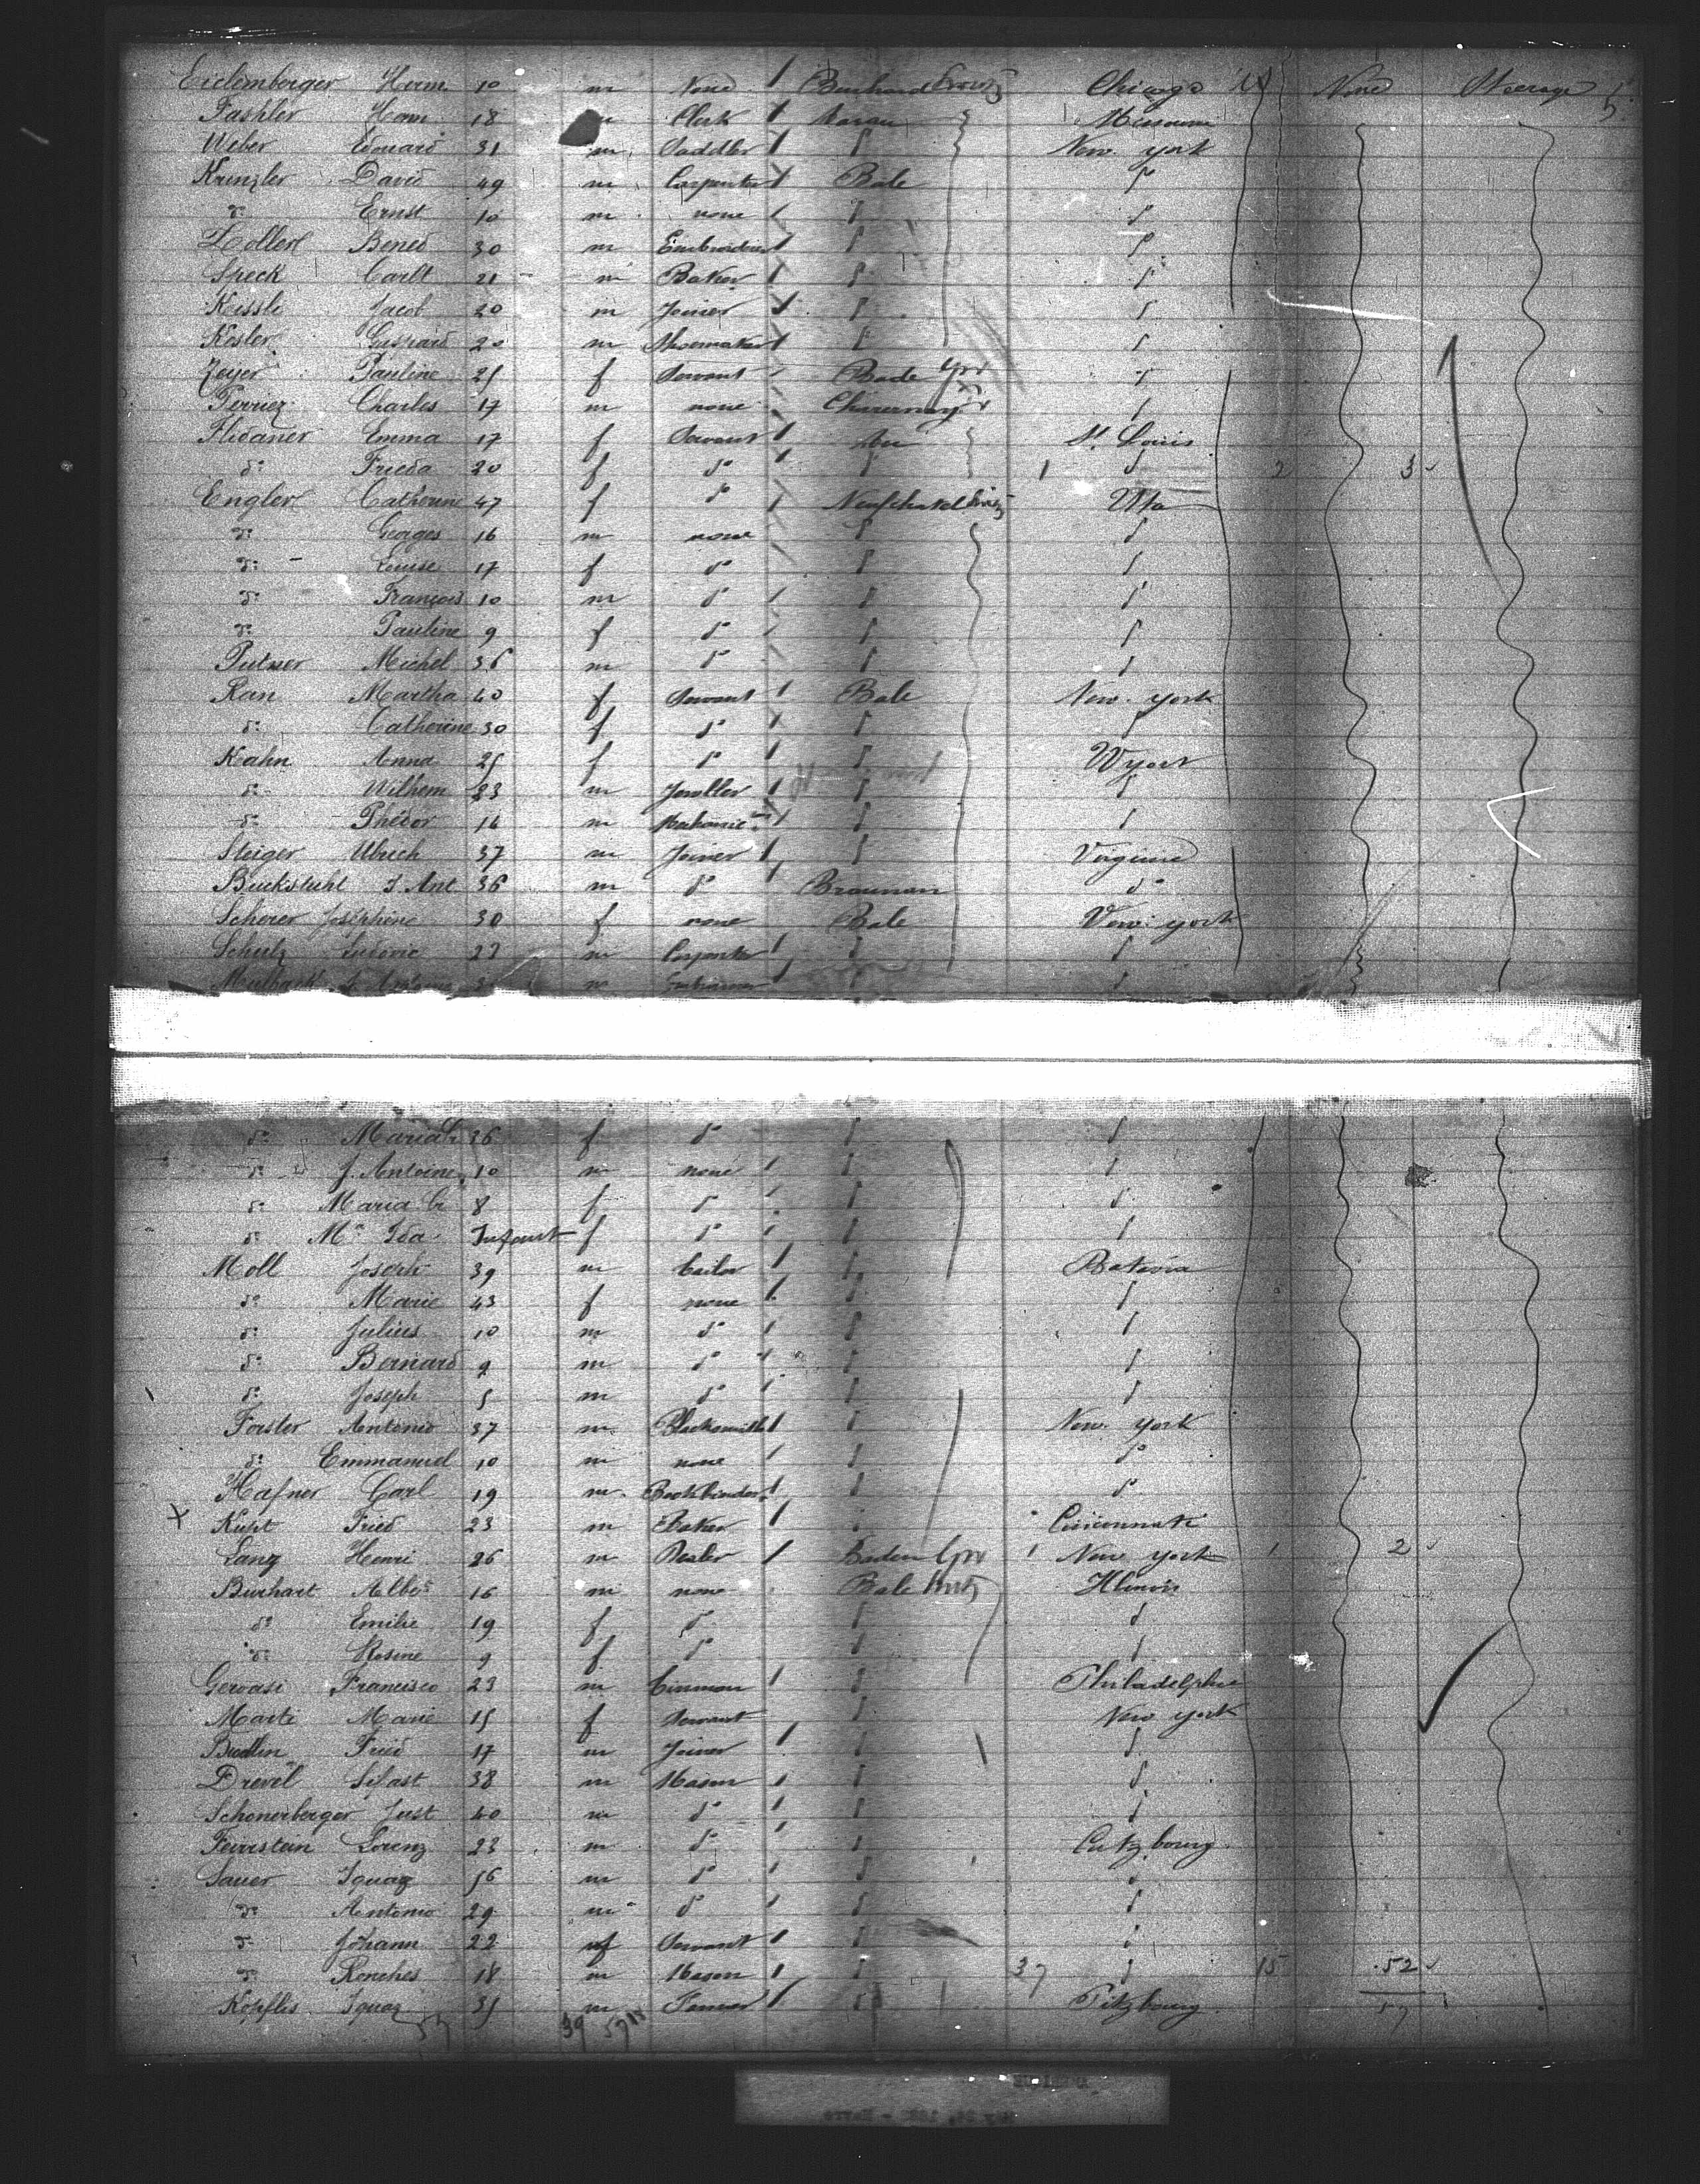 Eidemberger Herm. 10 m None Chicago None Steerage
Fashler Herm 18 m Clerk Aarau Missouri
Weber Edouard 31 m Saddler d New york
Krinzler David 49 m Carpenter Bale d
do Ernst 10 m none d d
Zollerl Bened 30 m d d
Speck Carlt 21 m Baker d d
Kessli Jacob 20 m Joiner d d
Kesler Gaspard 20 m Shoemaker d d
Zeyer Pauline 25 f Servant Bade d
Perrier Charles 17 m none d
Flidaner Emma 17 f Servant St Louis
do Frieda 20 f do d 1 d 2 3
Engler Catherine 47 f do Neufchatel Uta
do Georges 16 m none d d
do Louise 17 f do d d
do François 10 m do d d
do Pauline 9 f do d d
Putner Michel 36 m do d d
Ran Martha 40 f Servant Bale New york
do Catherine 30 f do d d
Kahn Anna 25 f do d
do Wilhem 23 m d d
do Thédor 16 m d d
Steiger Ulrich 37 m Joiner d Virginie
Buckstuhl J. Ant 36 m do do
Scherer Joséphine 30 f none Bale New york
Schulz Ludovic 23 m Carpenter d d
do Maria 36 f do d d
do J. Antoine 10 m none d d
do Maria Cr 8 f do d d
do Ma Ida Infant f do d d
Moll Joseph 39 m d Batavia
do Marie 43 f none d d
do Julius 10 m do d d
do Bernard 9 m do d d
do Joseph 5 m do d d
Forster Antonio 37 m Blacksmith d New york
do Emmanuel 10 m none d do
Hafner Carl 19 m Bookbinder d do
x Kupt Fried 23 m Baker Cincinnati
Lang Henri 26 m Baden 1 New york 1 2
Burhart Alber 16 m none Bale Illinois
do Emilie 19 f do d d
do Rosine 9 f do d d
Gervasi Francisco 23 m d Philadelphie
Marti Marie 15 f Servant d New york
Budlin Fried 17 m Joiner d d
Drevel Sebast 38 m Mason d d
Schonerberger Just 40 m do d d
Feurstein Lorenz 23 m do d
Sauer Ignaz 56 m do d d
do Antonio 29 m do d d
do Johann 22 Servant d d
do 18 m Mason d 37 d 15 52
Kopflis Ignaz 35 m d Pitzbourg 57
57 39 57